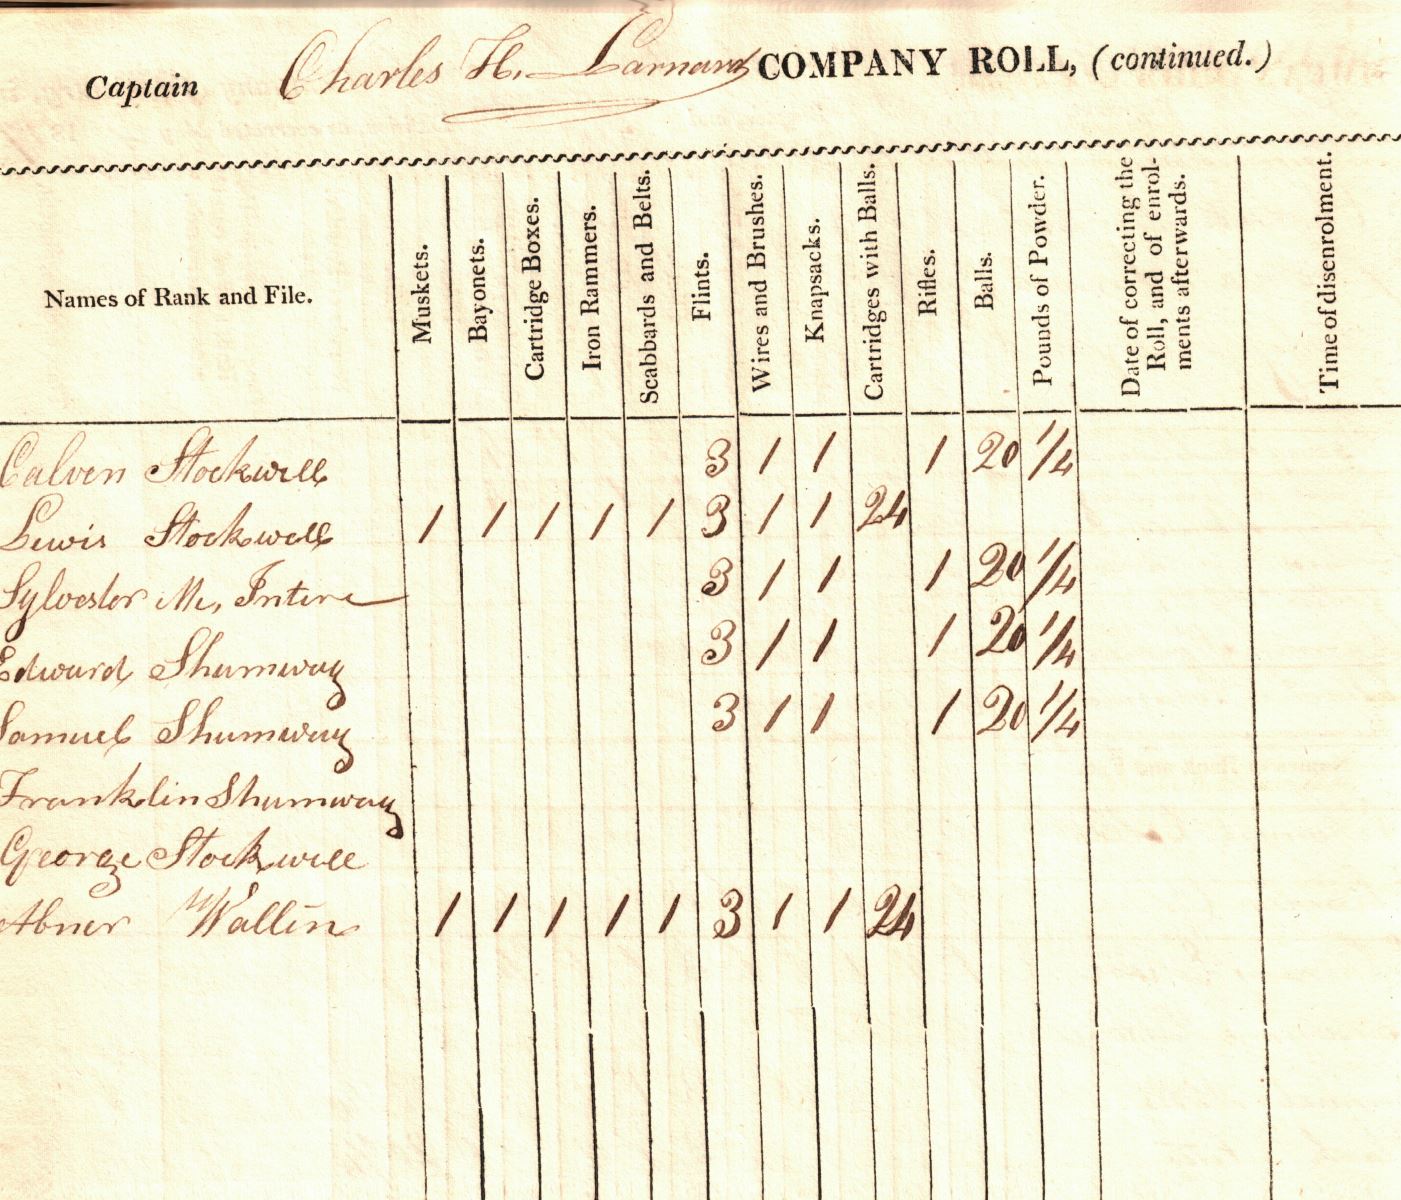 Captain Charles H. Larnard COMPANY ROLL, (continued.)
Names of Rank and File. Muskets. Bayonets. Cartridge Boxes. Iron Rammers. Scabbards and Belts. Flints. Wires and Brushes. Knapsacks. Cartridges with Balls. Rifles. Balls. Pounds of Powder. Date of correcting the Roll, and of enrolments afterwards. Time of disenrolment.
Calven Stockwell 3 1 1 1 20 1/4
Lewis Stockwell 1 1 1 1 1 3 1 1 24
Sylvester Mc, Intire 3 1 1 1 20 1/4
Edward Shumway 3 1 1 1 20 1/4
Samuel Shumway 3 1 1 1 20 1/4
Franklin Shumway
George Stockwell
Abner Wallin 1 1 1 1 1 3 1 1 24